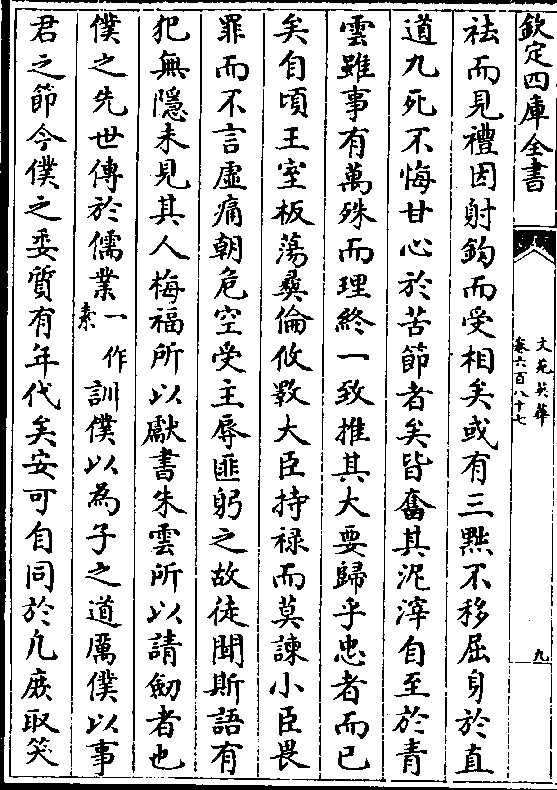 欽定四庫全書
文苑英華
卷六百八十七
九
袪而見禮因射鈎而受相矣或有三黜不移屈身於直
道九死不悔甘心於苦節者矣皆奮其泥滓自至於青
雲雖事有萬殊而理終一致推其大要歸乎忠者而已
矣自頃王室板蕩彛倫攸斁大臣持禄而莫諫小臣畏
罪而不言虛痛朝危空受主辱匪躬之故徒聞斯語有
犯無隱未見其人梅福所以獻書朱雲所以請劒者也
僕之先世傳於儒業一作素訓僕以為子之道厲僕以事
君之節今僕之委質有年代矣安可自同於凡庶取笑